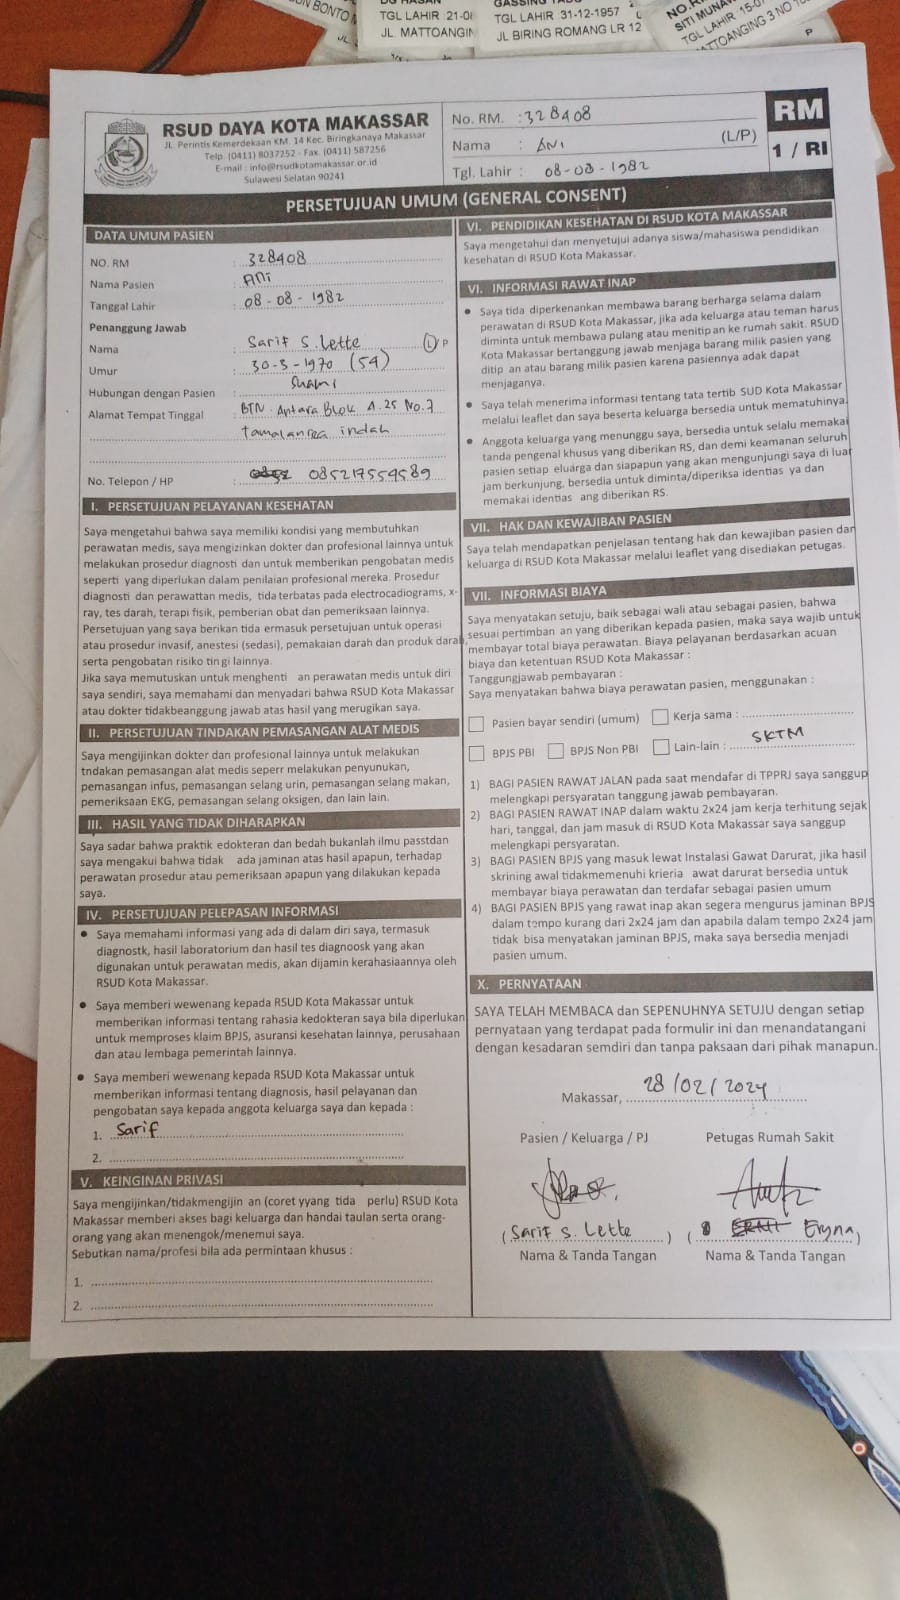 TGL LAHIR :21-0
JL. MATTOANGIN
TGL LAHIR :31-12-1957
JL BIRING ROMANG LR 12
SITI MUNA
TGL LAHIR :15-0
MATTOANGING 3 NO
RSUD DAYA KOTA MAKASSAR
JL. Perintis Kemerdekaan KM. 14 Kec. Biringkanaya Makassar
Telp. (0411) 8037252 - Fax. (0411) 587256
E-mail : info@rsudkotamakassar.or.id
Sulawesi Selatan 90241
No. RM. : 328408
Nama : ANI (L/P)
Tgl. Lahir : 08-08-1982
RM
1 / RI
PERSETUJUAN UMUM (GENERAL CONSENT)
DATA UMUM PASIEN
NO. RM : 328408
Nama Pasien : Ani
Tanggal Lahir : 08-08-1982
Penanggung Jawab
Nama : Sarif S. Lette L/P
Umur : 30-3-1970 (54)
Hubungan dengan Pasien : Suami
Alamat Tempat Tinggal : BTN. Antara Blok A.25 No.7
Tamalanrea indah
No. Telepon / HP : 085217559589
I. PERSETUJUAN PELAYANAN KESEHATAN
Saya mengetahui bahwa saya memiliki kondisi yang membutuhkan
perawatan medis, saya mengizinkan dokter dan profesional lainnya untuk
melakukan prosedur diagnosti dan untuk memberikan pengobatan medis
seperti yang diperlukan dalam penilaian profesional mereka. Prosedur
diagnosti dan perawattan medis, tida terbatas pada electrocadiograms, x-
ray, tes darah, terapi fisik, pemberian obat dan pemeriksaan lainnya.
Persetujuan yang saya berikan tida ermasuk persetujuan untuk operasi
atau prosedur invasif, anestesi (sedasi), pemakaian darah dan produk darah,
serta pengobatan risiko tin gi lainnya.
Jika saya memutuskan untuk menghenti an perawatan medis untuk diri
saya sendiri, saya memahami dan menyadari bahwa RSUD Kota Makassar
atau dokter tidakbeanggung jawab atas hasil yang merugikan saya.
II. PERSETUJUAN TINDAKAN PEMASANGAN ALAT MEDIS
Saya mengijinkan dokter dan profesional lainnya untuk melakukan
tndakan pemasangan alat medis seperr melakukan penyunukan,
pemasangan infus, pemasangan selang urin, pemasangan selang makan,
pemeriksaan EKG, pemasangan selang oksigen, dan lain lain.
III. HASIL YANG TIDAK DIHARAPKAN
Saya sadar bahwa praktik edokteran dan bedah bukanlah ilmu passtdan
saya mengakui bahwa tidak ada jaminan atas hasil apapun, terhadap
perawatan prosedur atau pemeriksaan apapun yang dilakukan kepada
saya.
IV. PERSETUJUAN PELEPASAN INFORMASI
• Saya memahami informasi yang ada di dalam diri saya, termasuk
diagnostk, hasil laboratorium dan hasil tes diagnoosk yang akan
digunakan untuk perawatan medis, akan dijamin kerahasiaannya oleh
RSUD Kota Makassar.
• Saya memberi wewenang kepada RSUD Kota Makassar untuk
memberikan informasi tentang rahasia kedokteran saya bila diperlukan
untuk memproses klaim BPJS, asuransi kesehatan lainnya, perusahaan
dan atau lembaga pemerintah lainnya.
• Saya memberi wewenang kepada RSUD Kota Makassar untuk
memberikan informasi tentang diagnosis, hasil pelayanan dan
pengobatan saya kepada anggota keluarga saya dan kepada :
1. Sarif
2.
V. KEINGINAN PRIVASI
Saya mengijinkan/tidakmengijin an (coret yyang tida perlu) RSUD Kota
Makassar memberi akses bagi keluarga dan handai taulan serta orang-
orang yang akan menengok/menemui saya.
Sebutkan nama/profesi bila ada permintaan khusus :
1.
2.
VI. PENDIDIKAN KESEHATAN DI RSUD KOTA MAKASSAR
Saya mengetahui dan menyetujui adanya siswa/mahasiswa pendidikan
kesehatan di RSUD Kota Makassar.
VI. INFORMASI RAWAT INAP
• Saya tida diperkenankan membawa barang berharga selama dalam
perawatan di RSUD Kota Makassar, jika ada keluarga atau teman harus
diminta untuk membawa pulang atau menitip an ke rumah sakit. RSUD
Kota Makassar bertanggung jawab menjaga barang milik pasien yang
ditip an atau barang milik pasien karena pasiennya adak dapat
menjaganya.
• Saya telah menerima informasi tentang tata tertib SUD Kota Makassar
melalui leaflet dan saya beserta keluarga bersedia untuk mematuhinya.
• Anggota keluarga yang menunggu saya, bersedia untuk selalu memakai
tanda pengenal khusus yang diberikan RS, dan demi keamanan seluruh
pasien setiap eluarga dan siapapun yang akan mengunjungi saya di luar
jam berkunjung, bersedia untuk diminta/diperiksa identias ya dan
memakai identias ang diberikan RS.
VII. HAK DAN KEWAJIBAN PASIEN
Saya telah mendapatkan penjelasan tentang hak dan kewajiban pasien dan
keluarga di RSUD Kota Makassar melalui leaflet yang disediakan petugas.
VII. INFORMASI BIAYA
Saya menyatakan setuju, baik sebagai wali atau sebagai pasien, bahwa
sesuai pertimban an yang diberikan kepada pasien, maka saya wajib untuk
membayar total biaya perawatan. Biaya pelayanan berdasarkan acuan
biaya dan ketentuan RSUD Kota Makassar :
Tanggungjawab pembayaran :
Saya menyatakan bahwa biaya perawatan pasien, menggunakan :
Pasien bayar sendiri (umum) Kerja sama :
BPJS PBI BPJS Non PBI Lain-lain : SKTM
1) BAGI PASIEN RAWAT JALAN pada saat mendafar di TPPRJ saya sanggup
melengkapi persyaratan tanggung jawab pembayaran.
2) BAGI PASIEN RAWAT INAP dalam waktu 2x24 jam kerja terhitung sejak
hari, tanggal, dan jam masuk di RSUD Kota Makassar saya sanggup
melengkapi persyaratan.
3) BAGI PASIEN BPJS yang masuk lewat Instalasi Gawat Darurat, jika hasil
skrining awal tidakmemenuhi krieria awat darurat bersedia untuk
membayar biaya perawatan dan terdafar sebagai pasien umum
4) BAGI PASIEN BPJS yang rawat inap akan segera mengurus jaminan BPJS
dalam tempo kurang dari 2x24 jam dan apabila dalam tempo 2x24 jam
tidak bisa menyatakan jaminan BPJS, maka saya bersedia menjadi
pasien umum.
X. PERNYATAAN
SAYA TELAH MEMBACA dan SEPENUHNYA SETUJU dengan setiap
pernyataan yang terdapat pada formulir ini dan menandatangani
dengan kesadaran semdiri dan tanpa paksaan dari pihak manapun.
Makassar, 28/02/2024
Pasien / Keluarga / PJ Petugas Rumah Sakit
(Sarif S. Lette) (Eryna)
Nama & Tanda Tangan Nama & Tanda Tangan